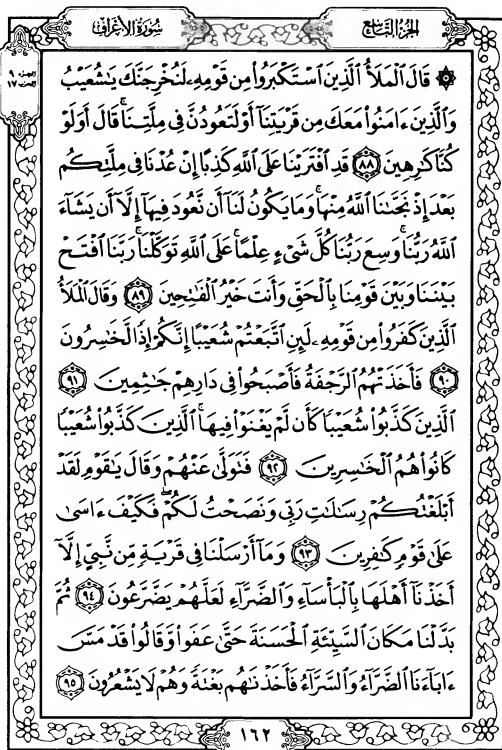 سُورَةُ الأَعْرَافِ
الجُزْءُ التَّاسِعُ
الجزء ٩
الحزب ١٧
۞ قَالَ ٱلْمَلَأُ ٱلَّذِينَ ٱسْتَكْبَرُوا۟ مِن قَوْمِهِۦ لَنُخْرِجَنَّكَ يَٰشُعَيْبُ
وَٱلَّذِينَ ءَامَنُوا۟ مَعَكَ مِن قَرْيَتِنَآ أَوْ لَتَعُودُنَّ فِى مِلَّتِنَا ۚ قَالَ أَوَلَوْ
كُنَّا كَٰرِهِينَ ٨٨ قَدِ ٱفْتَرَيْنَا عَلَى ٱللَّهِ كَذِبًا إِنْ عُدْنَا فِى مِلَّتِكُم
بَعْدَ إِذْ نَجَّىٰنَا ٱللَّهُ مِنْهَا ۚ وَمَا يَكُونُ لَنَآ أَن نَّعُودَ فِيهَآ إِلَّآ أَن يَشَآءَ
ٱللَّهُ رَبُّنَا ۚ وَسِعَ رَبُّنَا كُلَّ شَىْءٍ عِلْمًا ۚ عَلَى ٱللَّهِ تَوَكَّلْنَا ۚ رَبَّنَا ٱفْتَحْ
بَيْنَنَا وَبَيْنَ قَوْمِنَا بِٱلْحَقِّ وَأَنتَ خَيْرُ ٱلْفَٰتِحِينَ ٨٩ وَقَالَ ٱلْمَلَأُ
ٱلَّذِينَ كَفَرُوا۟ مِن قَوْمِهِۦ لَئِنِ ٱتَّبَعْتُمْ شُعَيْبًا إِنَّكُمْ إِذًا لَّخَٰسِرُونَ
٩٠ فَأَخَذَتْهُمُ ٱلرَّجْفَةُ فَأَصْبَحُوا۟ فِى دَارِهِمْ جَٰثِمِينَ ٩١
ٱلَّذِينَ كَذَّبُوا۟ شُعَيْبًا كَأَن لَّمْ يَغْنَوْا۟ فِيهَا ۚ ٱلَّذِينَ كَذَّبُوا۟ شُعَيْبًا
كَانُوا۟ هُمُ ٱلْخَٰسِرِينَ ٩٢ فَتَوَلَّىٰ عَنْهُمْ وَقَالَ يَٰقَوْمِ لَقَدْ
أَبْلَغْتُكُمْ رِسَٰلَٰتِ رَبِّى وَنَصَحْتُ لَكُمْ ۖ فَكَيْفَ ءَاسَىٰ
عَلَىٰ قَوْمٍ كَٰفِرِينَ ٩٣ وَمَآ أَرْسَلْنَا فِى قَرْيَةٍ مِّن نَّبِىٍّ إِلَّآ
أَخَذْنَآ أَهْلَهَا بِٱلْبَأْسَآءِ وَٱلضَّرَّآءِ لَعَلَّهُمْ يَضَّرَّعُونَ ٩٤ ثُمَّ
بَدَّلْنَا مَكَانَ ٱلسَّيِّئَةِ ٱلْحَسَنَةَ حَتَّىٰ عَفَوا۟ وَّقَالُوا۟ قَدْ مَسَّ
ءَابَآءَنَا ٱلضَّرَّآءُ وَٱلسَّرَّآءُ فَأَخَذْنَٰهُم بَغْتَةً وَهُمْ لَا يَشْعُرُونَ ٩٥
١٦٢